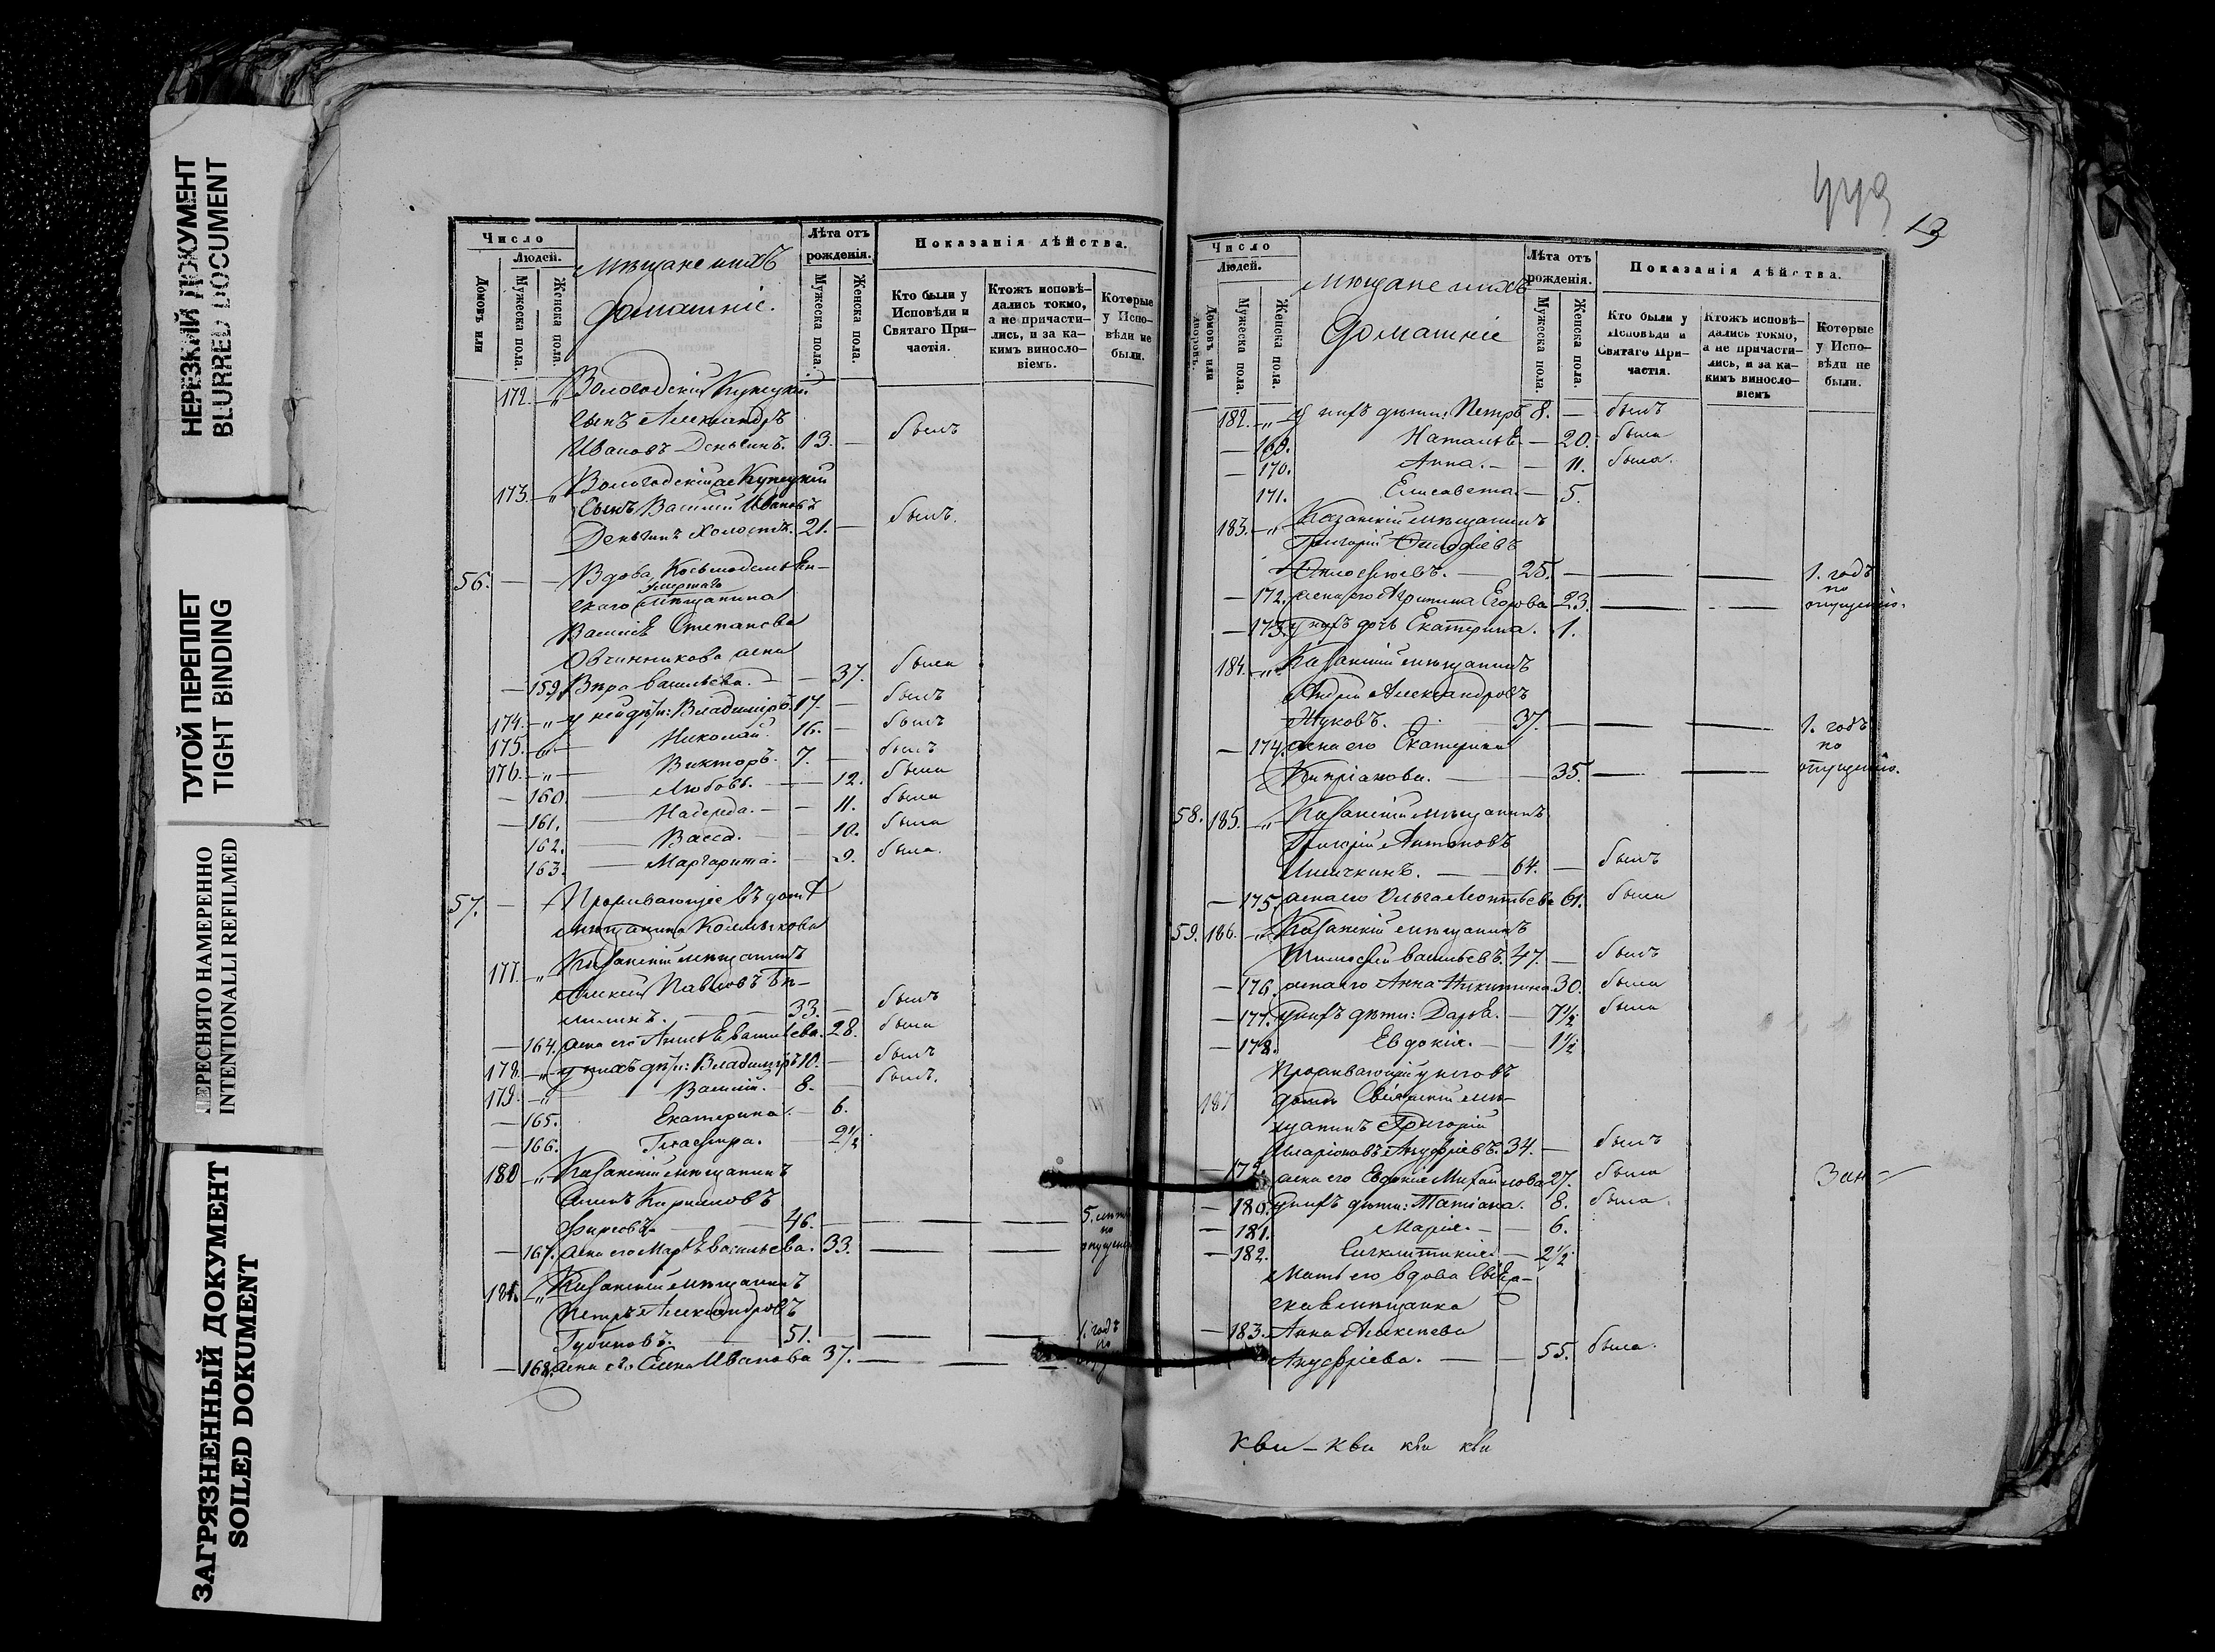 НЕРЕЗКИЙ ДОКУМЕНТ
BLURRED DOCUMENT
ТУГОЙ ПЕРЕПЛЕТ
TIGHT BINDING
ПЕРЕСНЯТО НАМЕРЕННО
INTENTIONALLI REFILMED
ЗАГРЯЗНЕННЫЙ ДОКУМЕНТ
SOILED DOKUMENT
Число
Людей.
Домовъ или
Мужеска пола.
Женска пола.
Мѣщане и ихъ
домашніе.
Лѣта отъ
рожденія.
Мужеска пола.
Женска пола.
Показанія дѣйства.
Кто были у
Исповѣди и
Святаго При-
частія.
Ктожъ исповѣ-
дались токмо,
а не причасти-
лись, и за ка-
кимъ винсло-
віемъ.
Которые
у Испо-
вѣди не
были.
172. „ Вологодскій Купецкій
сынъ Александръ
Ивановъ Деньгинъ. 13. — былъ
173. „ Вологодскій же Купецкій
Сынъ Василій Ивановъ
Деньгинъ Холостъ. 21. — былъ.
56. — — Вдова Козьмодемьян-
умершаго
скаго мѣщанина
Василія Степанова
Овчинникова жена
— 159. Вѣра Васильева. — — 37. была
174. — „ у ней дѣти: Владиміръ. 17. — былъ
175. — Николай. 16. — былъ
176. — „ — Викторъ. 7. — былъ
— 160. — Любовь. — 12. была
— 161. — Надежда. — 11. была
162. — Васса. — 10. была
163. — Маргарита. — 9. была.
57. — Проживающіе въ домѣ
мѣщанина
177. — „ Казанскій мѣщанинъ
Алексѣй Павловъ
33. — былъ
— 164. жена его Васильева. 28. была
178. — „ у нихъ дѣти: Владиміръ 10. — былъ
179. — „ Василій. 8. — былъ.
— 165. Екатерина. — 6.
— 166. Глафира. — 2½
180 — „ Казанскій мѣщанинъ
46. — — — 5. лѣтъ
по
— 167. жена его Марья Васильева. 33. — — опущен
181. — „ Казанскій мѣщанинъ
Петръ Александровъ
Губиновъ. 51. — — — 1. годъ
по
— 168. жена его Елена Иванова 37. — — —
449
13
Число
Людей.
Домовъ или
дворовъ.
Мужеска пола.
Женска пола.
Мѣщане и ихъ
домашніе
Лѣта отъ
рожденія.
Мужеска пола.
Женска пола.
Показанія дѣйства.
Кто были у
Исповѣди и
Святаго При-
частія.
Ктожъ исповѣ-
дались токмо,
а не причасти-
лись, и за ка-
кимъ винсло-
віемъ
Которые
у Испо-
вѣди не
были.
182. — „ — у нихъ дѣти: Петръ 8. — былъ
— 169. Наталья — 20. была
— 170. Анна. — — 11. была.
171. Елисавета. — 5.
183. — „ Казанскій мѣщанинъ
Григорій
25. — — — 1. годъ
по
— 172. жена его Агрипина Егорова 23. — — опущенію.
— 173. у нихъ дочь Екатерина. 1.
184. — „ Казанскій мѣщанинъ
Андрей Александровъ
Жуковъ. 37. — — — 1. годъ
— 174. жена его Екатерина по
Кипріанова. — — 35. — — опущенію.
58. 185. — „ Казанскій мѣщанинъ
Григорій Антоновъ
64. — былъ
— 175. жена его Ольга Леонтьева 61. была
59. 186. — „ Казанскій мѣщанинъ
Тимофей Васильевъ. 47. — былъ
— 176. жена его Анна Никитина. 30. была
— 177. у нихъ дѣти: Дарья. — 7½ была
— 178. Евдокія. — — 1½
Проживающій у него въ
187 домѣ Свіяжскій мѣ-
щанинъ Григорій
Иларіоновъ Ануфріевъ. 34. — былъ
— 179. жена его Евдокія Михайлова 27. была
Зан —
— 180. у нихъ дѣти: Татіана. 8. была.
— 181. Марія. — 6.
— 182. — 2½
Мать его вдова Свіяж-
ская мѣщанка
— 183. Анна Алексѣева
Ануфріева. — — 55. была.
кви — кви кви кви